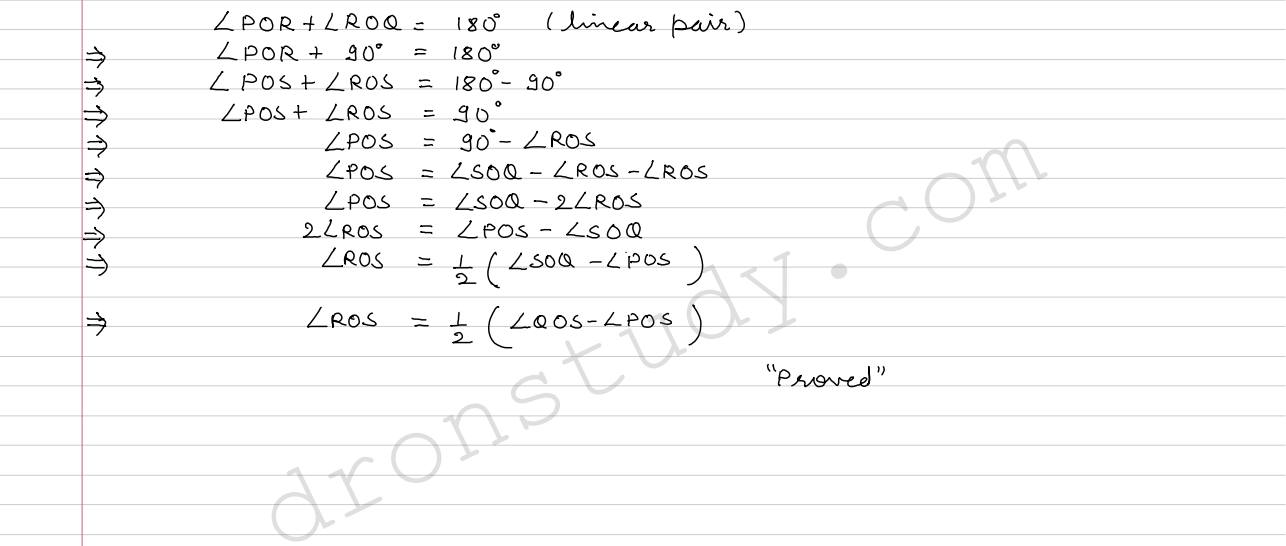 ∠POR + ∠ROQ = 180° (linear pair)
⇒ ∠POR + 90° = 180°
⇒ ∠POS + ∠ROS = 180° - 90°
⇒ ∠POS + ∠ROS = 90°
⇒ ∠POS = 90° - ∠ROS
⇒ ∠POS = ∠SOQ - ∠ROS - ∠ROS
⇒ ∠POS = ∠SOQ - 2∠ROS
⇒ 2∠ROS = ∠POS - ∠SOQ
⇒ ∠ROS = 1/2 (∠SOQ - ∠POS)
⇒ ∠ROS = 1/2 (∠QOS - ∠POS)
"Proved"
dronstudy.com